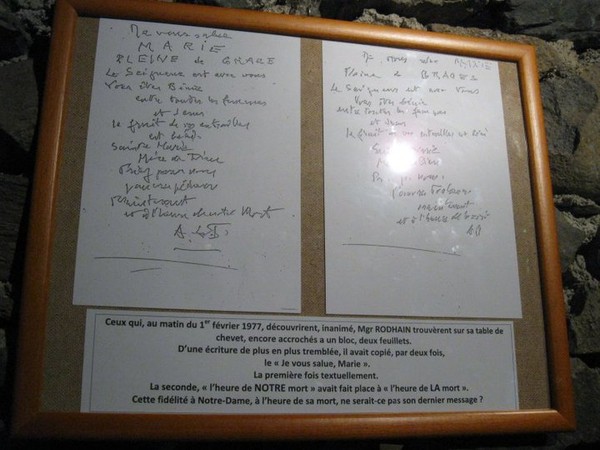 Je vous salue
MARIE
PLEINE de GRACE
Le Seigneur est avec vous
Vous êtes Bénie
entre toutes les femmes
et Jésus
le fruit de vos entrailles
est béni.
Sainte Marie
Mère de Dieu
Priez pour nous
pauvres pécheurs
maintenant
et à l'heure de notre Mort
Je vous salue MARIE
Pleine de GRACES
Le Seigneur est avec vous
Vous êtes bénie
entre toutes les femmes
et Jésus
le fruit de vos entrailles est béni
pour nous
maintenant
et à l'heure de la
Ceux qui, au matin du 1er février 1977, découvrirent, inanimé, Mgr RODHAIN trouvèrent sur sa table de
chevet, encore accrochés a un bloc, deux feuillets.
D'une écriture de plus en plus tremblée, il avait copié, par deux fois,
le « Je vous salue, Marie ».
La première fois textuellement.
La seconde, « l'heure de NOTRE mort » avait fait place à « l'heure de LA mort ».
Cette fidélité à Notre-Dame, à l'heure de sa mort, ne serait-ce pas son dernier message ?